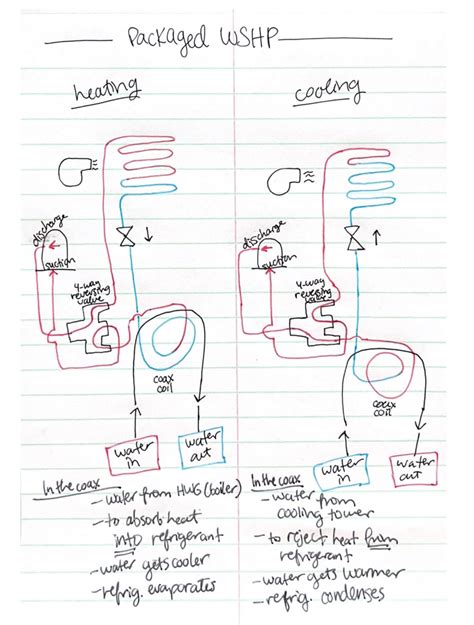 Packaged WSHP
heating
discharge
suction
4-way
reversing
valve
coax
coil
water
in
water
out
In the coax
- water from HWG (boiler)
- to absorb heat
INTO refrigerant
- water gets cooler
- refrig. evaporates
cooling
discharge
suction
4-way
reversing
valve
coax
coil
water
in
water
out
In the coax
- water from
cooling tower
- to reject heat from
refrigerant
- water gets warmer
- refrig. condenses